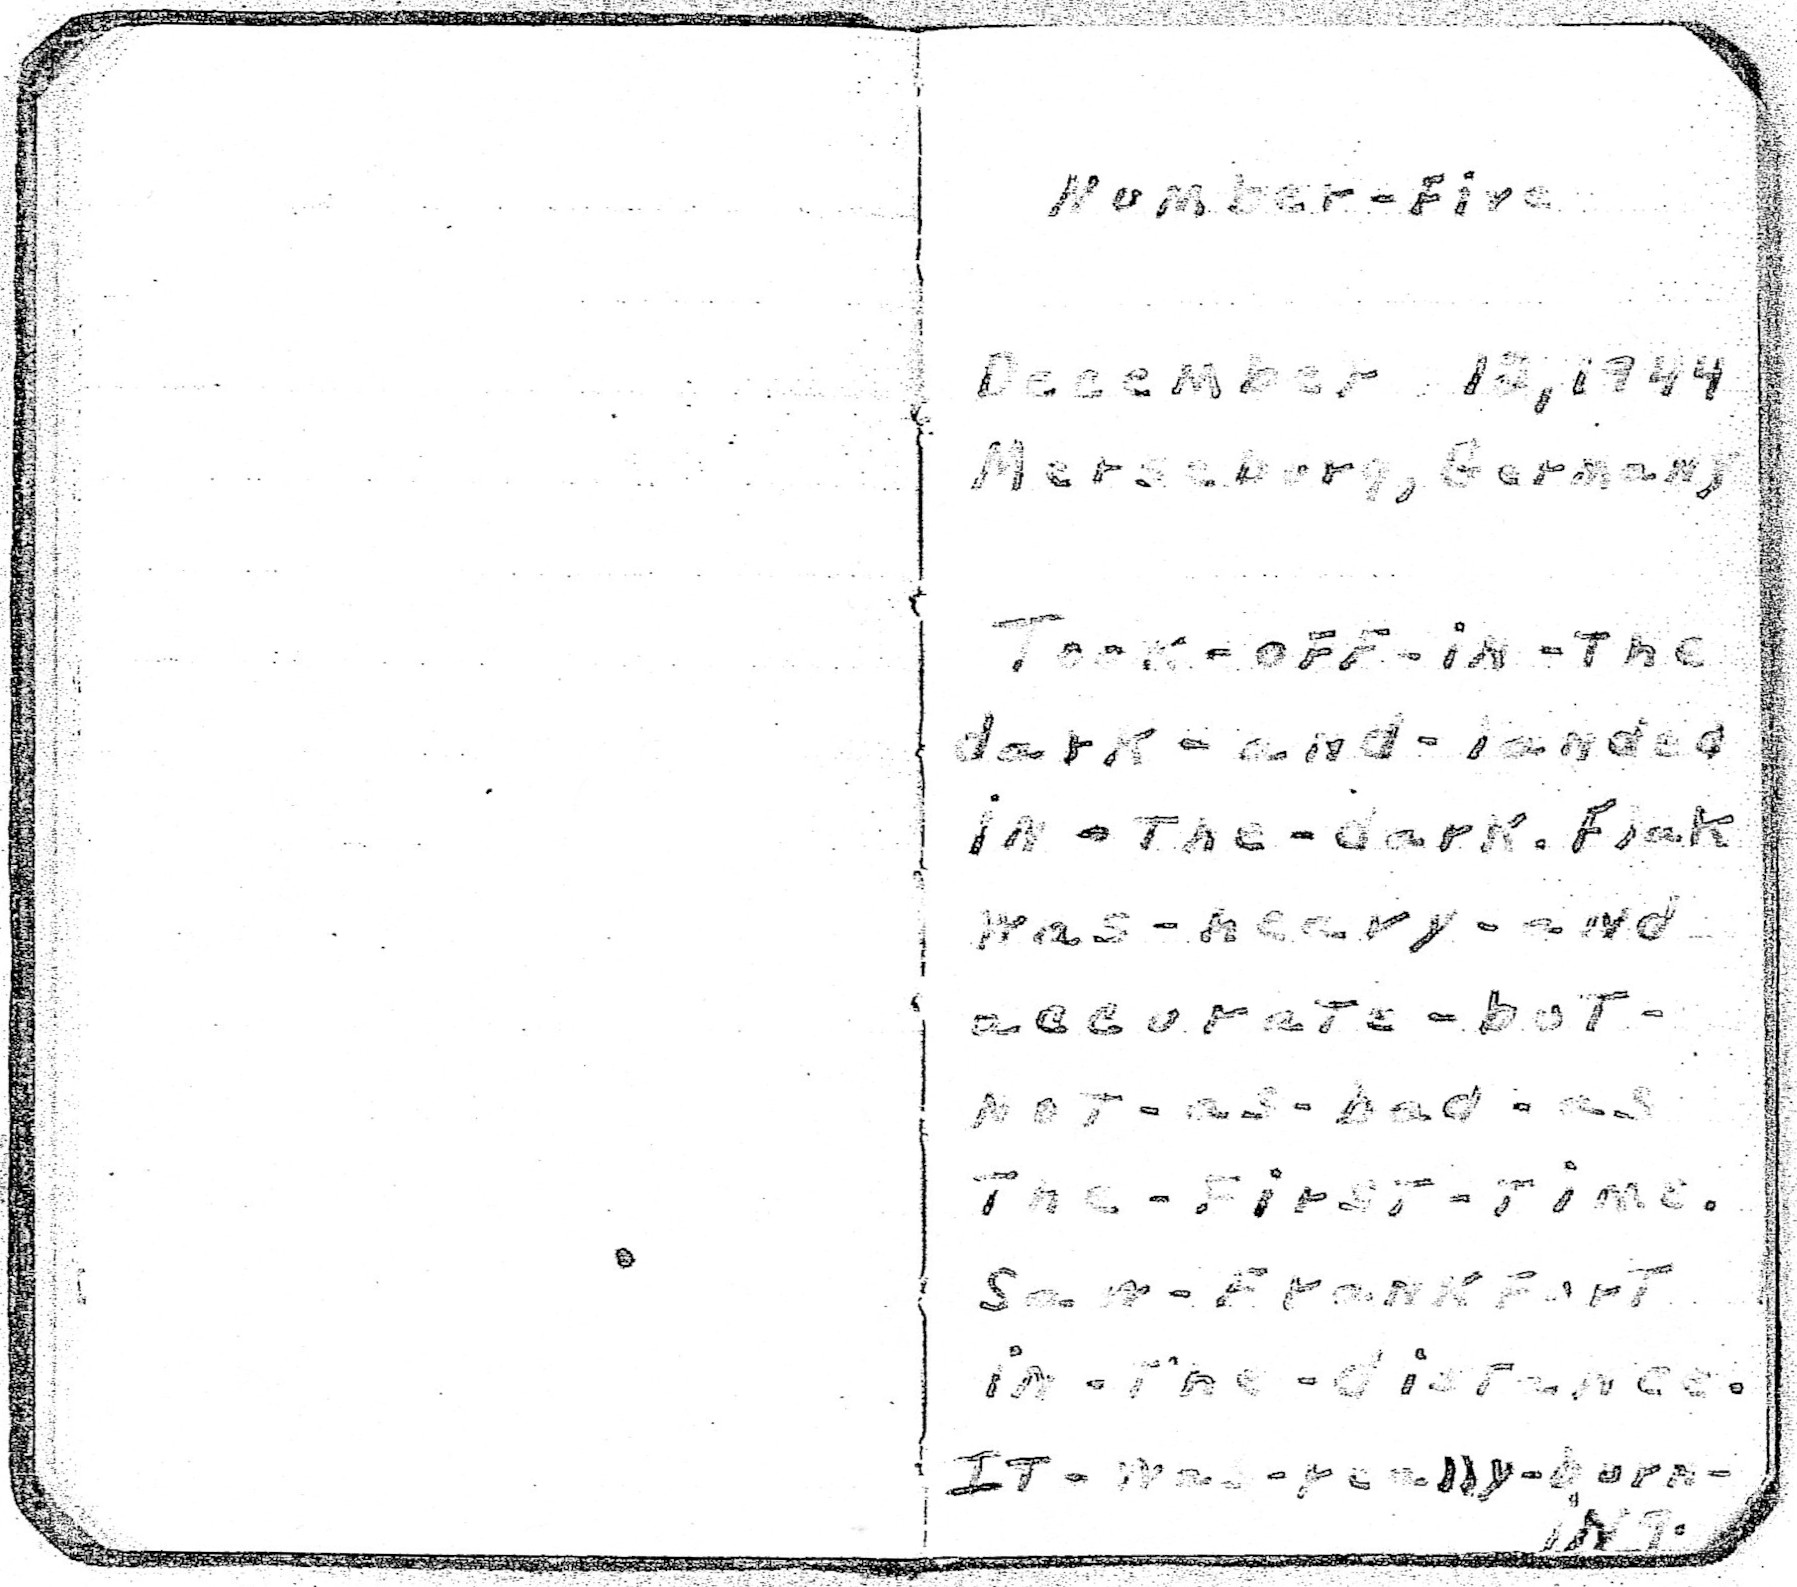 Number-Five
December 12, 1944
Merseburg, Germany
Took-off-in-the
dark-and-landed
in-the-dark. Flak
was-heavy-and
accurate-but-
not-as-bad-as
the-first-time.
Saw-Frankfort
in-the-distance.
It-was-really-burn-
ing.